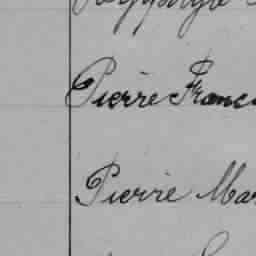 Pierre Franc
Pierre Mar